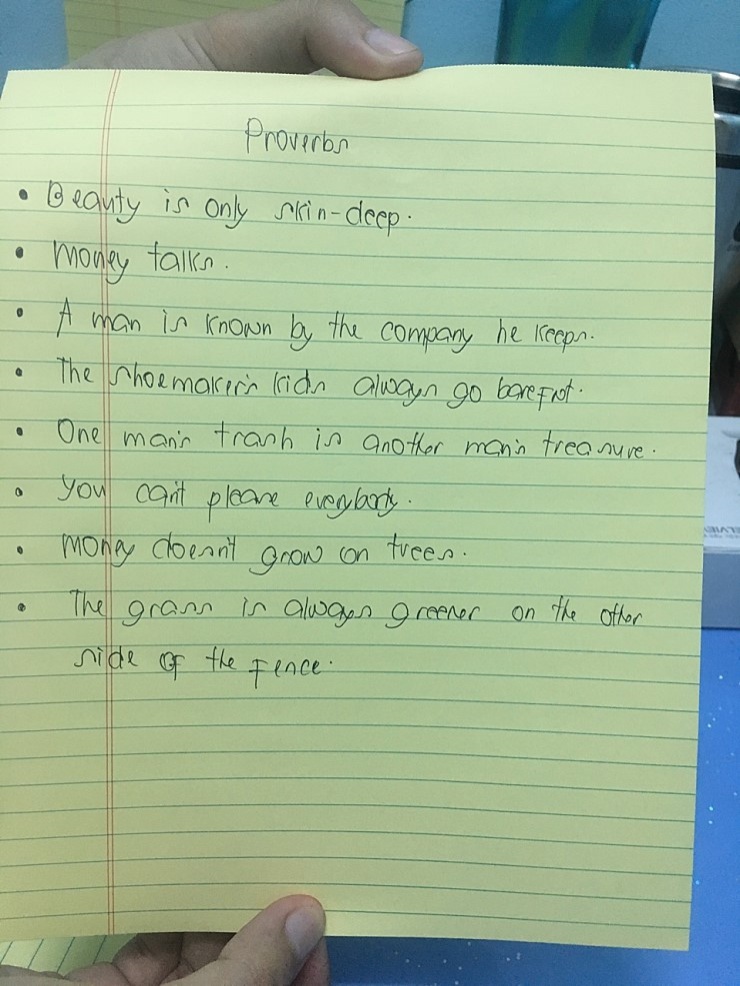 Proverbs
• Beauty is only skin-deep.
• Money talks.
• A man is known by the company he keeps.
• The shoemaker's kids always go barefoot.
• One man's trash is another man's treasure.
• You can't please everybody.
• Money doesn't grow on trees.
• The grass is always greener on the other
side of the fence.